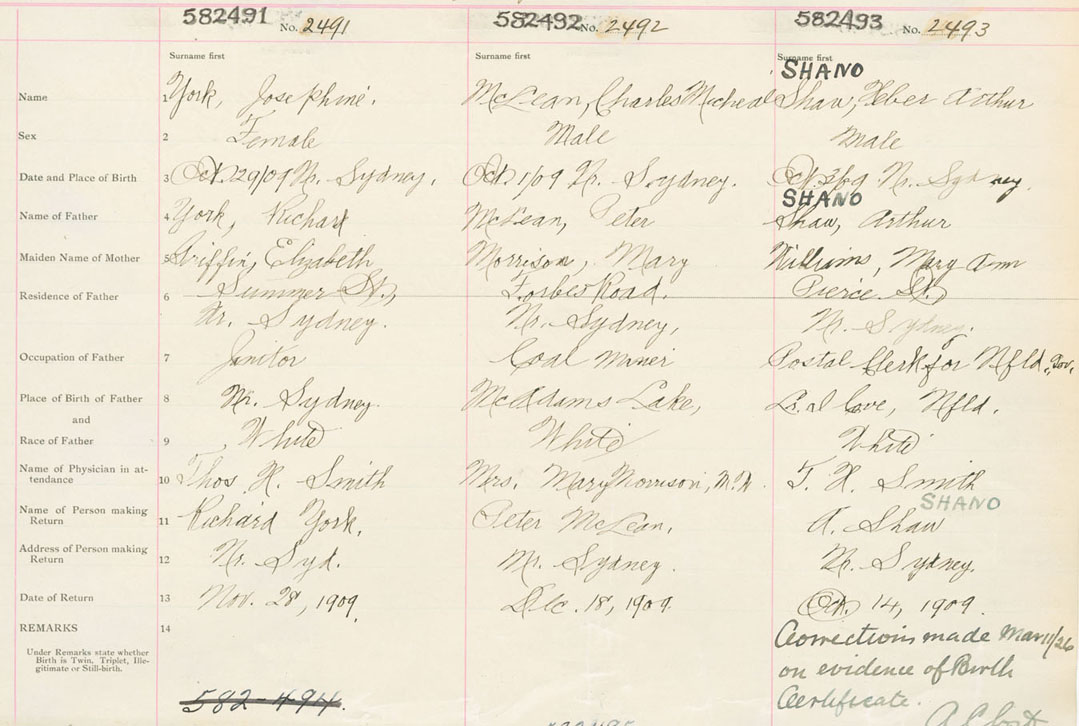 582491 No. 2491 582492 No. 2492 582493 No. 2493
Surname first Surname first Surname first
SHANO
Name 1 York, Josephine. McLean, Charles Micheal Shaw, Heber Arthur
Sex 2 Female Male Male
Date and Place of Birth 3 Oct. 29/09 Nr. Sydney. Oct. 1/09 Nr. Sydney. Oct. 3/09 Nr. Sydney.
SHANO
Name of Father 4 York, Richard McLean, Peter Shaw, Arthur
Maiden Name of Mother 5 Griffin, Elizabeth Morrison, Mary Williams, Mary Ann
Residence of Father 6 Summer St., Forbes Road. Pierce St.
Nr. Sydney. Nr. Sydney, Nr. Sydney.
Occupation of Father 7 Janitor Coal Miner Postal Clerk for Nfld. Gov.
Place of Birth of Father 8 Nr. Sydney. McAdams Lake, Cove, Nfld.
and
Race of Father 9 White White White
Name of Physician in at-
tendance 10 Thos. H. Smith Mrs. Mary Morrison, M.W. T. H. Smith
SHANO
Name of Person making
Return 11 Richard York, Peter McLean, A. Shaw
Address of Person making
Return 12 Nr. Syd. Nr. Sydney. Nr. Sydney.
Date of Return 13 Nov. 28, 1909 Dec. 18, 1909 Oct. 14, 1909.
REMARKS 14
Under Remarks state whether
Birth is Twin, Triplet, Ille-
gitimate or Still-birth.
Corrections made Mar 11/26
on evidence of Birth
Certificate.
582-494.